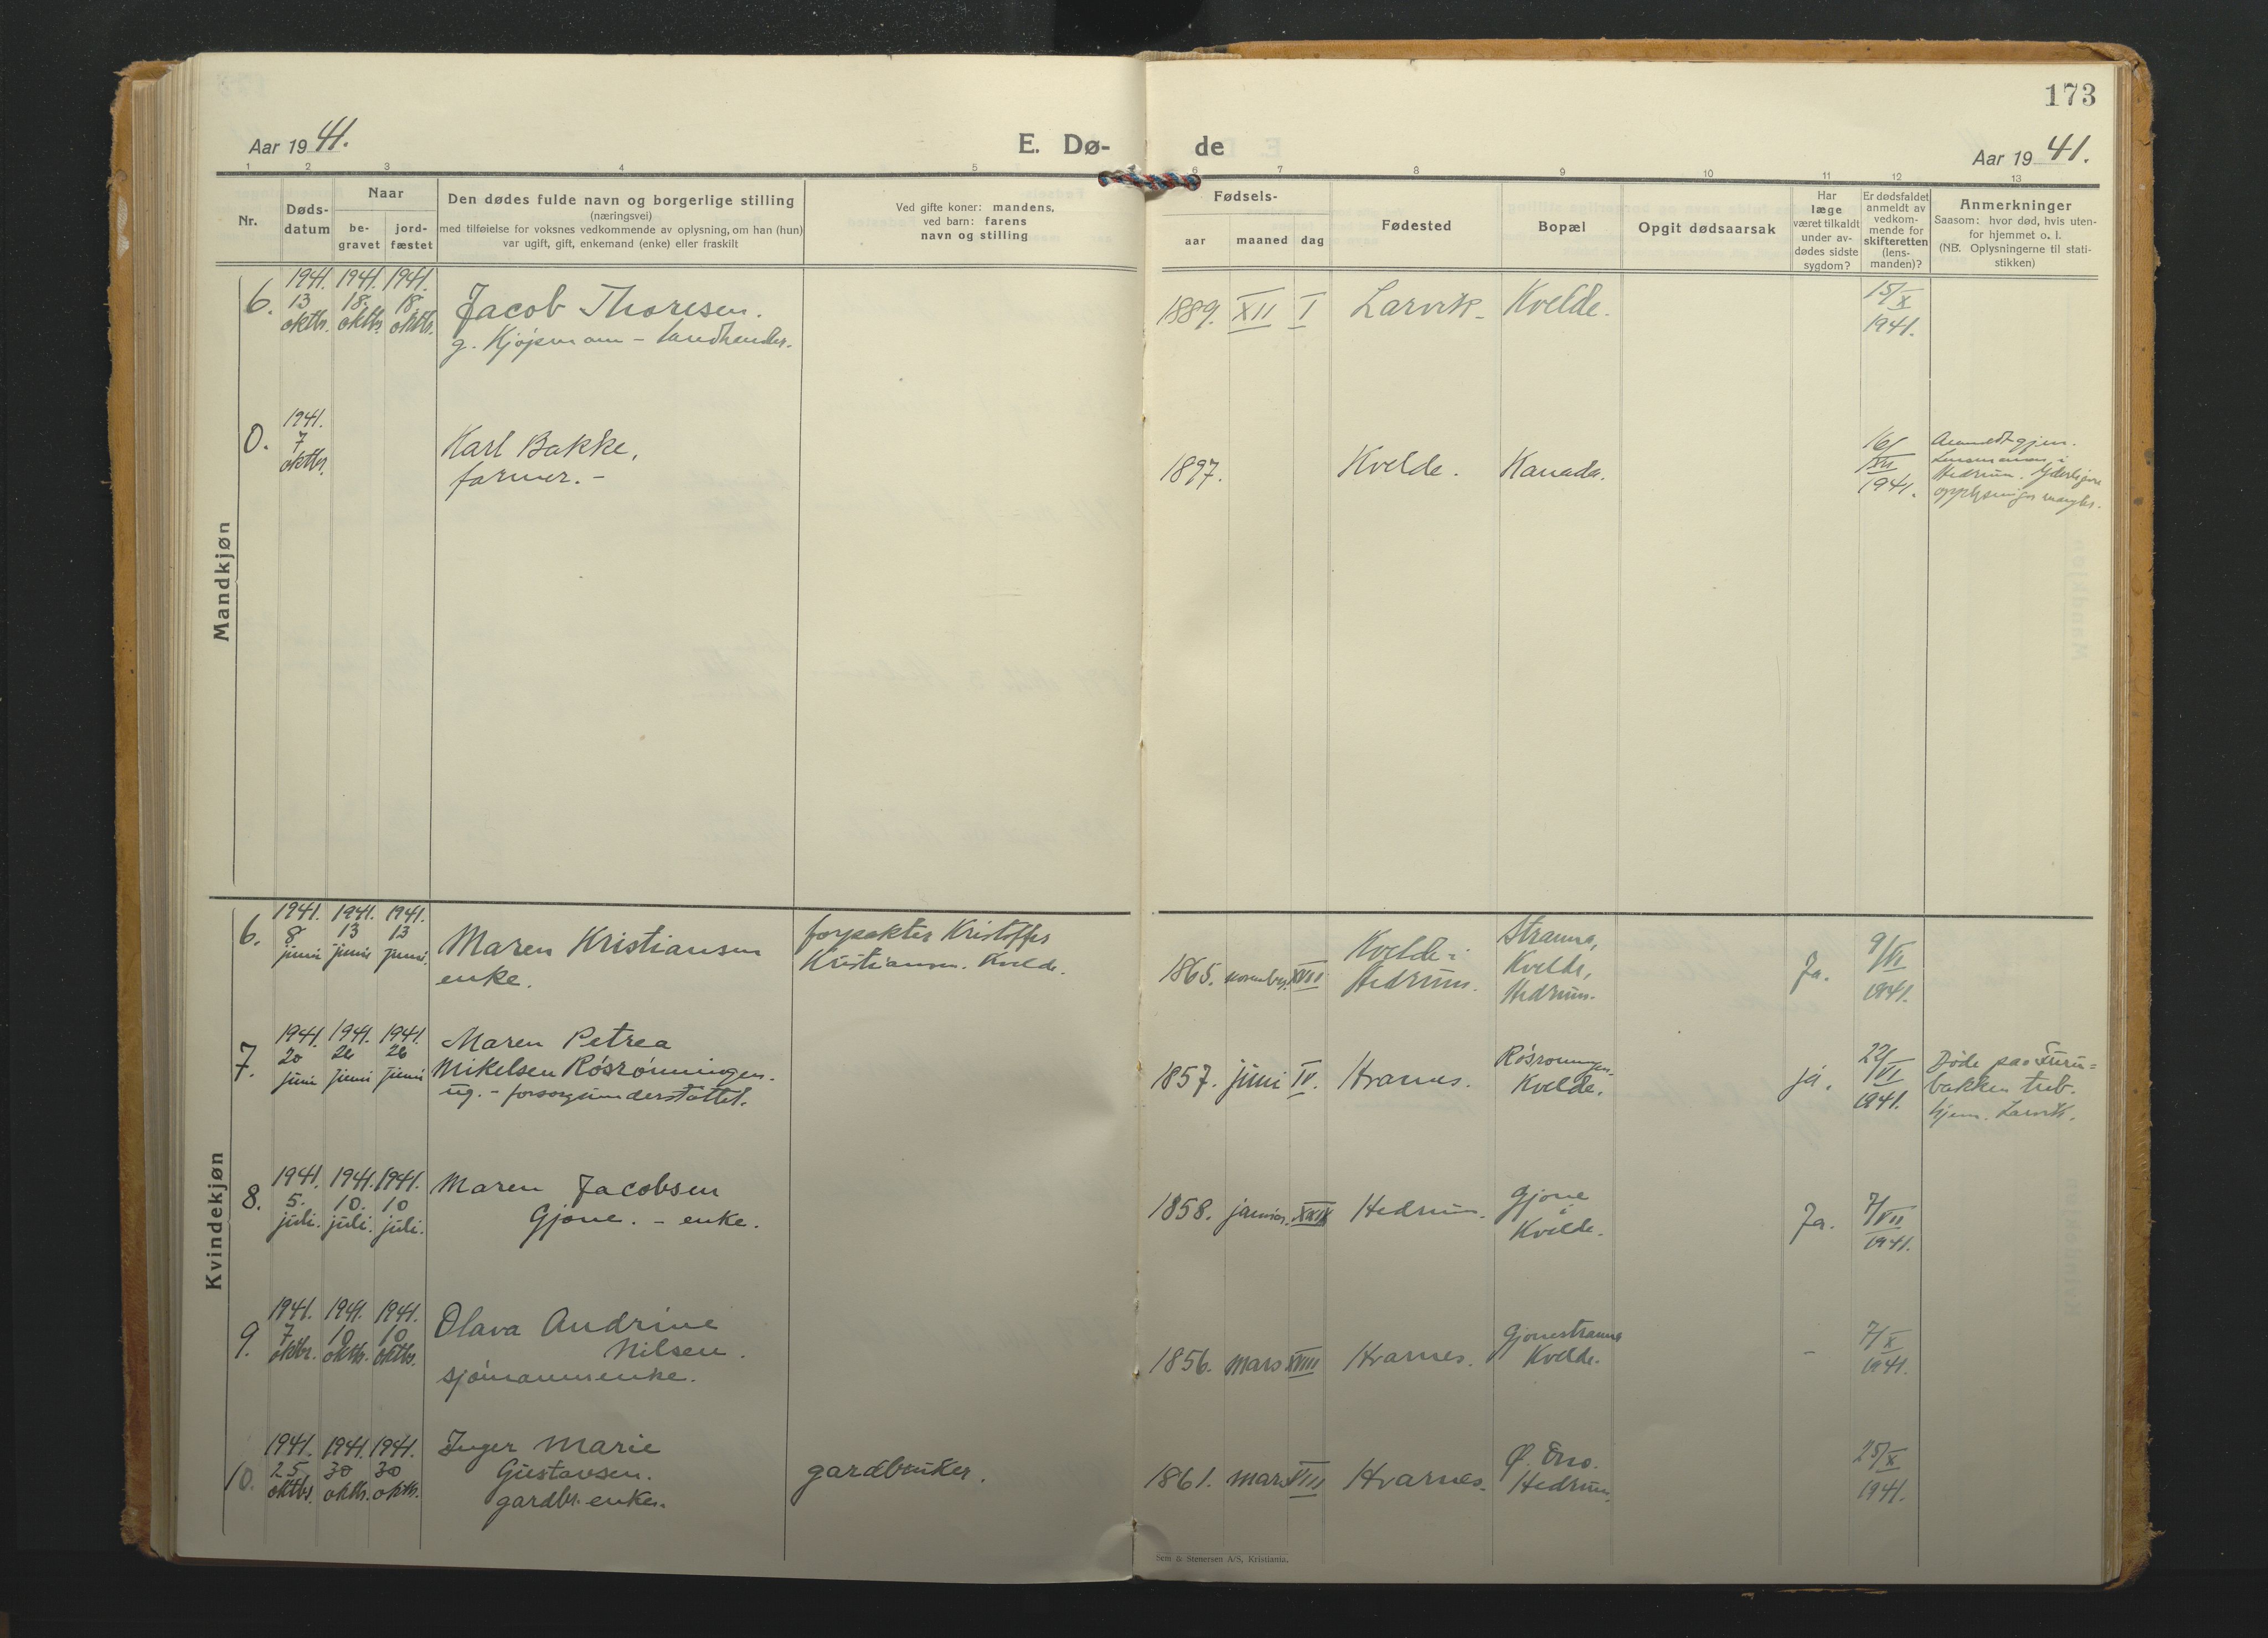 173
Aar 1941.
E. Dø-
de
Aar 1941.
1 2 3 4 5 6 7 8 9 10 11 12 13
Nr.
Døds-
datum
Naar
be-
gravet
jord-
fæstet
Den dødes fulde navn og borgerlige stilling
(næringsvei)
med tilføielse for voksnes vedkommende av oplysning, om han (hun)
var ugift, gift, enkemand (enke) eller fraskilt
Ved gifte koner: mandens,
ved barn: farens
navn og stilling
Fødsels-
aar maaned dag
Fødested
Bopæl
Opgit dødsaarsak
Har
læge
været tilkaldt
under av-
dødes sidste
sygdom?
Er dødsfaldet
anmeldt av
vedkom-
mende for
skifteretten
(lens-
manden)?
Anmerkninger
Saasom: hvor død, hvis uten-
for hjemmet o. l.
(NB. Oplysningerne til stati-
stikken)
Mandkjøn
6.
1941. 1941. 1941.
13 18. 18.
oktbr. oktbr. oktbr.
Jacob Thoresen.
g. Kjøpmann - landhandler.
1889. XII I
Larvik.
Kvelde.
15/X
1941.
0.
1941.
7
oktbr.
Karl Bakke,
farmer. -
1897.
Kvelde.
Kanada.
16/
XII
1941.
Anmeldt gjen.
Lensmannen i
Hedrum. Yderligere
opplysninger mangler.
Kvindekjøn
6.
1941. 1941. 1941.
8 13 13
juni juni juni.
Maren Kristiansen
enke.
forpakter Kristoffer
Kristiansen. Kvelde.
1865. november XVII
Kvelde i
Hedrum.
Kvelde,
Hedrum.
Ja.
9/VI
1941.
7.
1941. 1941. 1941.
20 26 26
juni juni juni
Maren Petrea
Mikelsen Rósrónningen.
ug. - forsorgsunderstøttet.
1857. juni IV.
Hvarnes.
Rósronningen.
Kvelde.
ja.
22/
VI
1941.
Døde paa Furu-
bakken tub.
hjem. Larvik.
8.
1941. 1941. 1941.
5. 10. 10
juli. juli. juli.
Maren Jacobsen
Gjone. - enke.
1858. januar. XXIX
Hedrum.
Gjone
i
Kvelde.
Ja.
7/VII
1941.
9.
1941. 1941. 1941.
7 10 10
oktbr. oktbr. oktbr.
Olava Andrine
Nilsen.
sjómannsenke.
1856. mars XVIII
Hvarnes.
Kvelde.
-
7/X
1941.
10.
1941. 1941. 1941.
25 30 30
oktbr. oktbr. oktbr.
Inger Marie
Gustavsen.
gardbr. enke.
gardbruker.
1861. mars VIII
Hvarnes.
Hedrum.
25/X
1941.
Sem & Stenersen A/S, Kristiania.